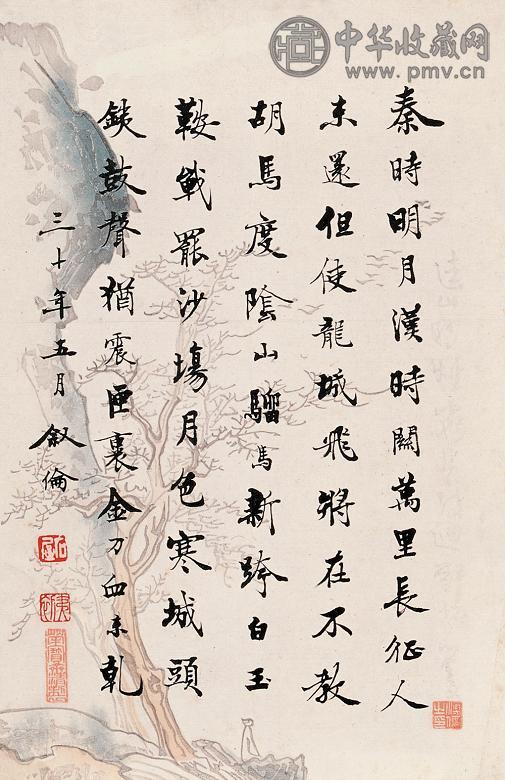 中华收藏网
www.pmv.cn
秦時明月漢時關萬里長征人
未還但使龍城飛將在不教
胡馬度陰山騮馬新跨白玉
鞍戰罷沙場月色寒城頭
鉄鼓聲猶震匣裏金刀血未乾
三十年五月 叙倫